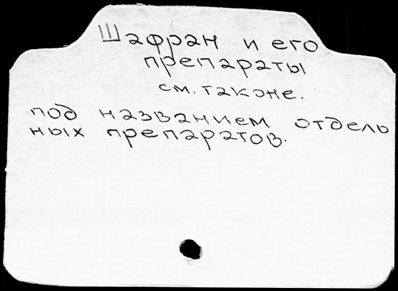 Шафран и его
препараты
см. также.
под названием отдель
ных препаратов.